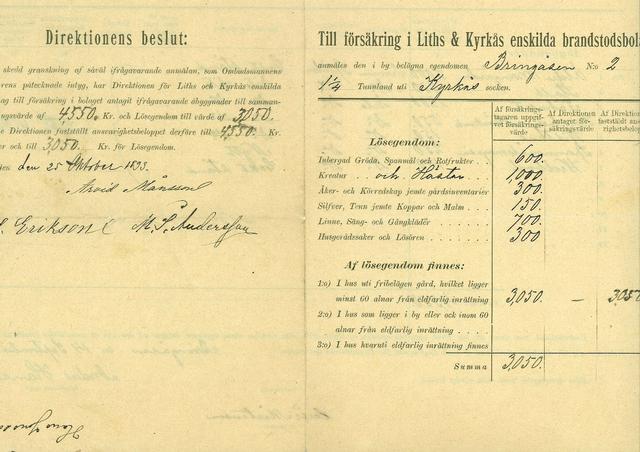 Direktionens beslut:
skedd granskning af såväl ifrågavarande anmälan, som Ombudsmannens
rens påtecknade intyg, har Direktionen för Liths och Kyrkås enskilda
ag till försäkring i bolaget antagit ifrågavarande åbyggnader till samman-
ngsvärde af 4550. Kr. och Lösegendom till värde af 3050.
e Direktionen fastställt ansvarighetsbeloppet derföre till 4550. Kr.
er och till 3050. Kr. för Lösegendom.
den 25 Oktober 1893.
Arvid Månsson
Erikson M. S. Andersson
Till försäkring i Liths & Kyrkås enskilda brandstodsbol
anmäles den i by belägna egendomen Bringåsen N:o 2
1 1/4 Tunnland uti Kyrkås socken.
Af försäkrings-
tagaren uppgif-
vet försäkrings-
värde
Af Direktionen
antaget för-
säkringsvärde.
Af Direktion
fastställdt an-
righetsbelop.
Lösegendom:
Inbergad Gröda, Spanmål och Rotfrukter 600.
Kreatur och Hästar 1,000.
Åker- och Körredskap jemte gårdsinventarier 300.
Silfver, Tenn jemte Koppar och Malm 150.
Linne, Säng- och Gångkläder 700.
Husgerådssaker och Lösören 300
Af lösegendom finnes:
1:o) I hus uti fribelägen gård, hvilket ligger
minst 60 alnar från eldfarlig inrättning 3,050. — 305
2:o) I hus som ligger i by eller och inom 60
alnar från eldfarlig inrättning
3:o) I hus hvaruti eldfarlig inrättning finnes
Summa 3,050.